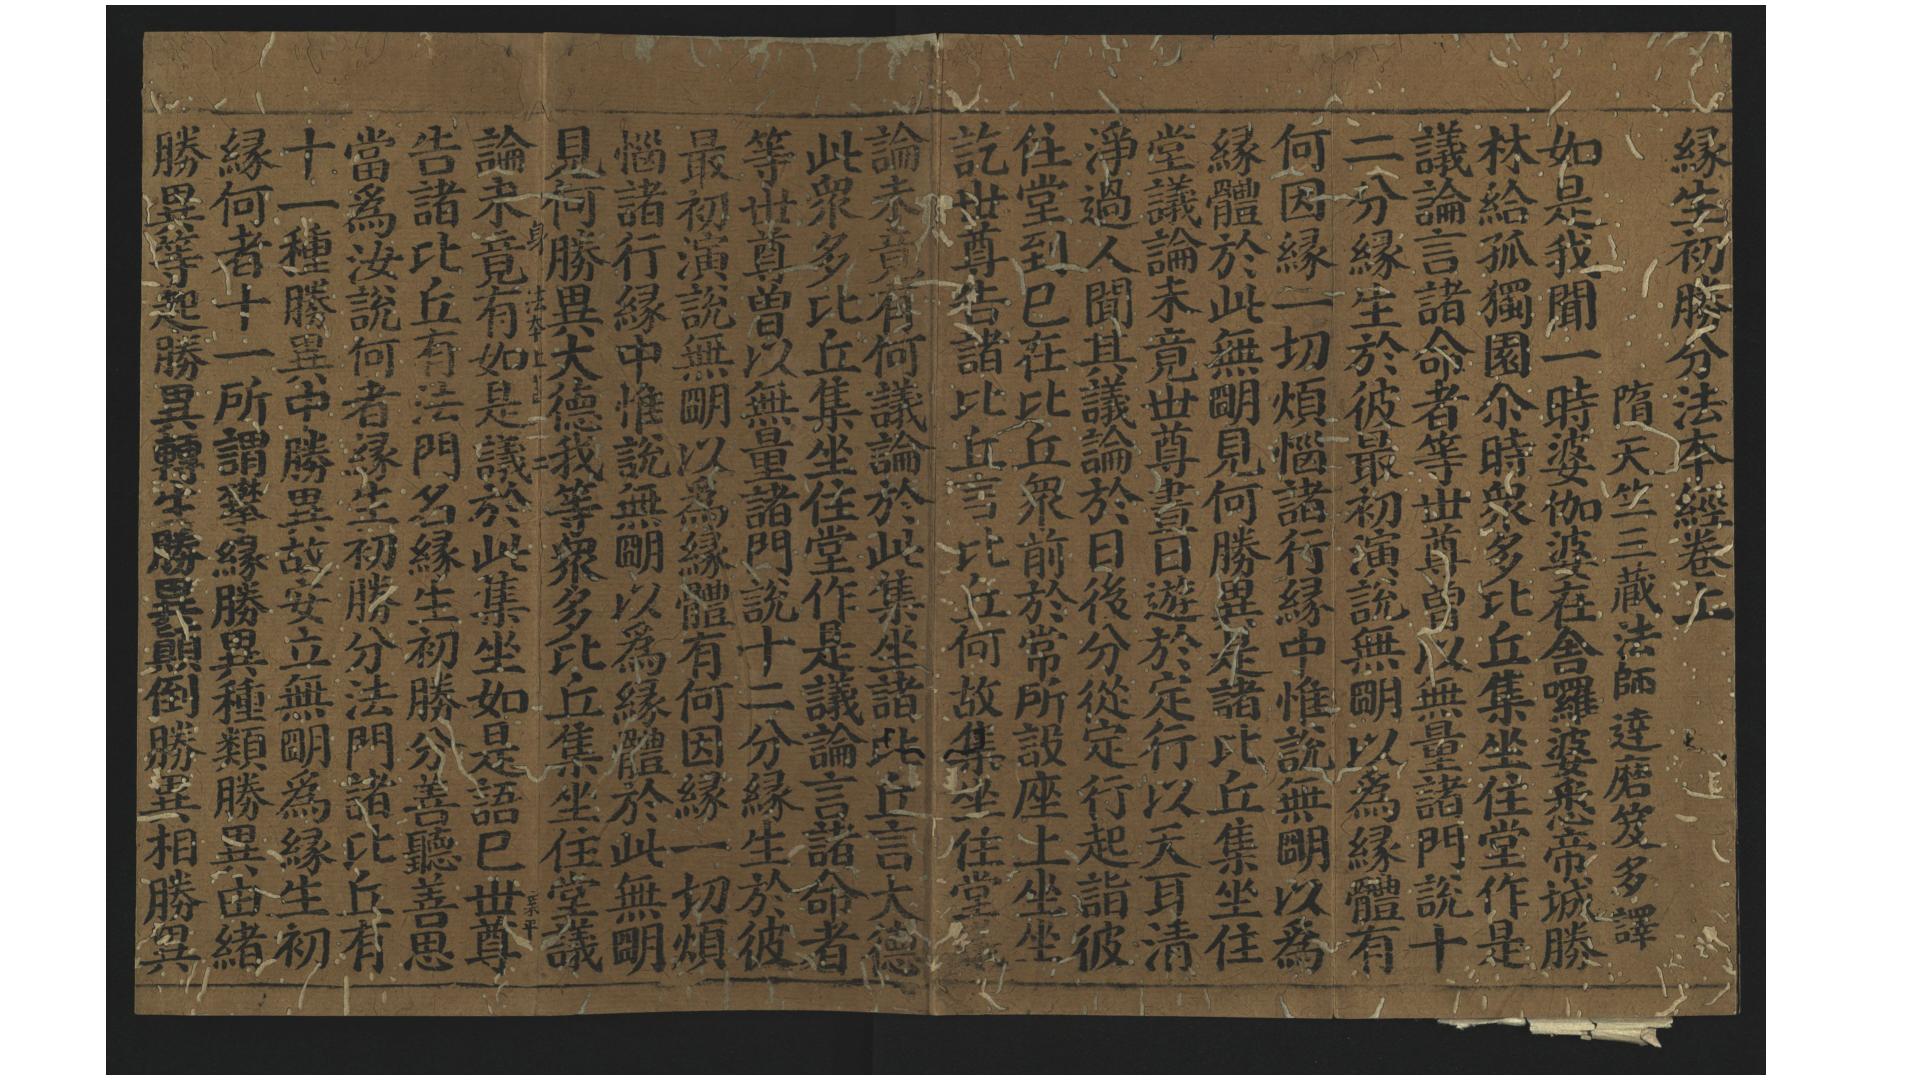 緣生初勝分法本經卷上
隋天竺三藏法師達磨笈多譯
如是我聞一時婆伽婆在舍囉婆悉帝城勝
林給孤獨園尒時衆多比丘集坐住堂作是
議論言諸命者等世尊曾以無量諸門說十
二分緣生於彼最初演說無明以爲緣體有
何因緣一切煩惱諸行緣中惟說無明以爲
緣體於此無明見何勝異是諸比丘集坐住
堂議論未竟世尊晝日遊於定行以天耳清
淨過人聞其議論於日後分從定行起詣彼
住堂到已在比丘衆前於常所設座上坐坐
訖世尊告諸比丘言比丘何故集坐住堂議
論未竟有何議論於此集坐諸比丘言大德
此衆多比丘集坐住堂作是議論言諸命者
等世尊曾以無量諸門說十二分緣生於彼
最初演說無明以爲緣體有何因緣一切煩
惱諸行緣中惟說無明以爲緣體於此無明
見何勝異大德我等衆多比丘集坐住堂議
身
論未竟有如是議於此集坐如是語已世尊
告諸比丘有法門名緣生初勝分善聽善思
當爲汝說何者緣生初勝分法門諸比丘有
十一種勝異中勝異故安立無明爲緣生初
緣何者十一所謂攀緣勝異種類勝異由緒
勝異等起勝異轉生勝異顛倒勝異相勝異